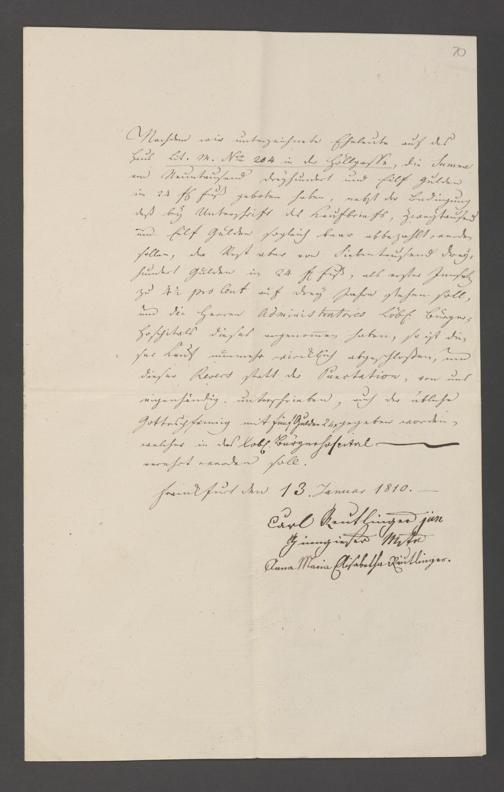 70
Nachdem wir unterzeichnete Eheleute auf das
Haus Lit. M. No 204 in der Höllgasse, die Summe
von Neuntausend dreyhundert und Eilf Gulden
in 24 f Fuß geboten haben, nebst der Bedingung
daß bey Unterschrift des Kaufbriefs, Zweytausend
und Eilf Gulden sogleich baar abbezahlt werden
sollen, der Rest aber von Siebentausend drey-
hundert Gulden in 24 f Fuß, als erster Insatz
zu pro Cent auf drey Jahre stehen soll,
und die Herren Administratores Löbl. Bürger-
Hospitals dieses angenommen haben, so ist die-
ser Kauf nunmehr wirklich abgeschlossen, und
dieser Revers statt der Punctation, von uns
eigenhändig unterschrieben, auch der übliche
Gottespfennig mit fünf Gulden 24 gegeben worden,
welcher in das Löbl. Bürgerhospital
verehrt werden soll.
Frankfurt den 13. Januar 1810.
Carl Reutlinger jun
Zinngießer Mstr
Anna Maria Elisabetha Reutlinger.